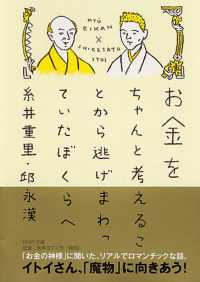 KYŪ EIKAN
×
SHIGESATO ITOI
お金を
ちゃんと考えるこ
とから逃げまわっ
ていたぼくらへ
糸井重里・邱永漢
PHP文庫
「お金の神様」に聞いた、リアルでロマンチックな話。
イトイさん、「魔物」に向きあう!